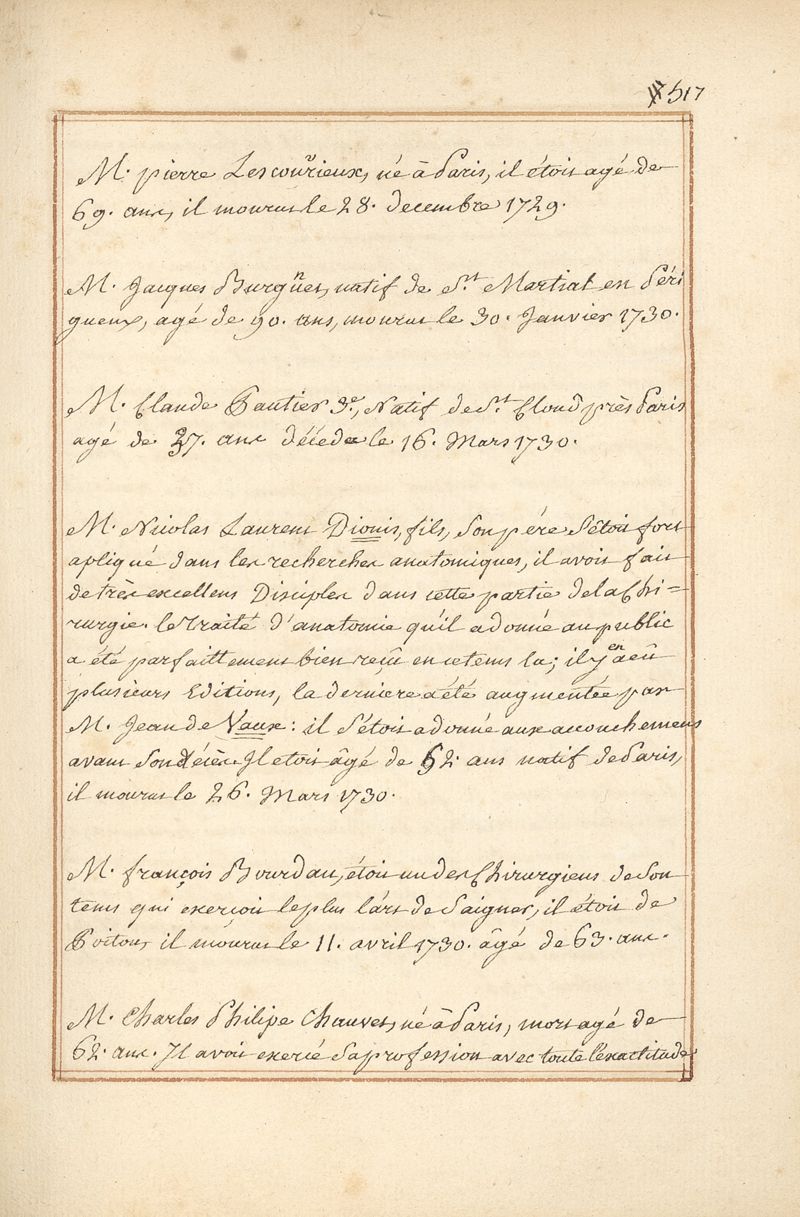 517
M. pierre Lescourrieux, né à Paris, il étoit agé de
69. ans, il mourut le 28. decembre 1729.
M. Jacques Burgnet, natif de St. Martial en Péri
gueux, agé de 90. ans, mourut le 30. Janvier 1730.
M. Claude Gautier 3e., Natif de St. Cloud près Paris
agé de 37. ans décédé le 16. Mars 1730.
M. Nicolas Laurent Dionis, fils, son père s'étoit fort
apliqué dans les recherches anatomiques, il avoit fait
de très excellens Disciples dans cette partie de la Chi=
rurgie. le traité d'anatomie qu'il a donné au public
a été parfaittement bien reçû en ce tems la; il y en a eû
plusieurs Editions, la derniere a été augmentée par
M. Jean de Vaux: il s'étoit adonné aux accouchemens
avant son décès. Il etoit âgé de 52. ans natif de Paris,
il mourut le 26. Mars 1730.
M. françois Bourdau, étoit un des Chirurgiens de son
tems qui exerçoit le plus l'art de Saigner, il étoit de
Poitou, il mourut le 11. avril 1730. âgé de 63. ans.
M. Charles Philipe Chauvet, né à Paris, mort agé de
62. ans. Il avoit exercé sa profession avec toute l'exactitude